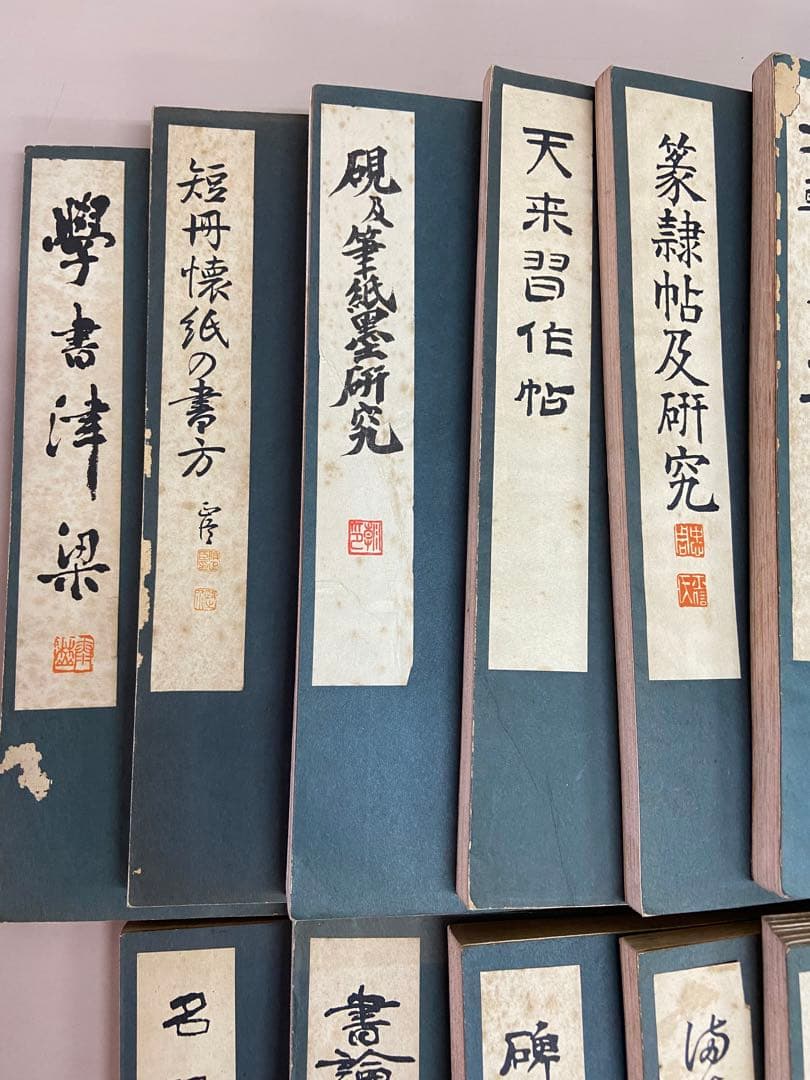 學書津梁
短冊懐紙の書方
硯及筆紙墨研究
天来習作帖
篆隷帖及研究
名
書論
碑